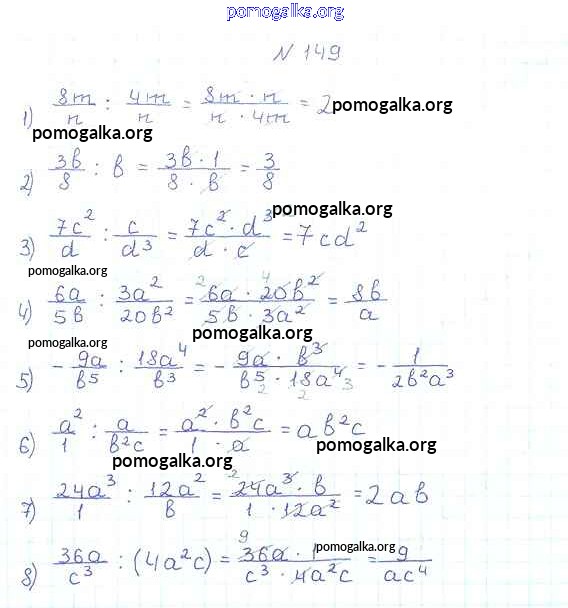 pomogalka.org
№ 149
1) 8m/n : 4m/n = 8m · n / n · 4m = 2 pomogalka.org
pomogalka.org
2) 3в/8 : в = 3в · 1 / 8 · в = 3/8
pomogalka.org
3) 7c²/d : c/d³ = 7c² · d³ / d · c = 7cd²
pomogalka.org
4) 6a/5в : 3a²/20в² = 6a · 20в² / 5в · 3a² = 8в/a
pomogalka.org
5) - 9a/в⁵ : 18a⁴/в³ = - 9a · в³ / в⁵ · 18a⁴ = - 1/2в²a³
6) a²/1 : a/в²c = a² · в²c / 1 · a = aв²c
pomogalka.org
pomogalka.org
7) 24a³/1 : 12a²/в = 24a³ · в / 1 · 12a² = 2aв
pomogalka.org
8) 36a/c³ : (4a²c) = 36a · 1 / c³ · 4a²c = 9/ac⁴